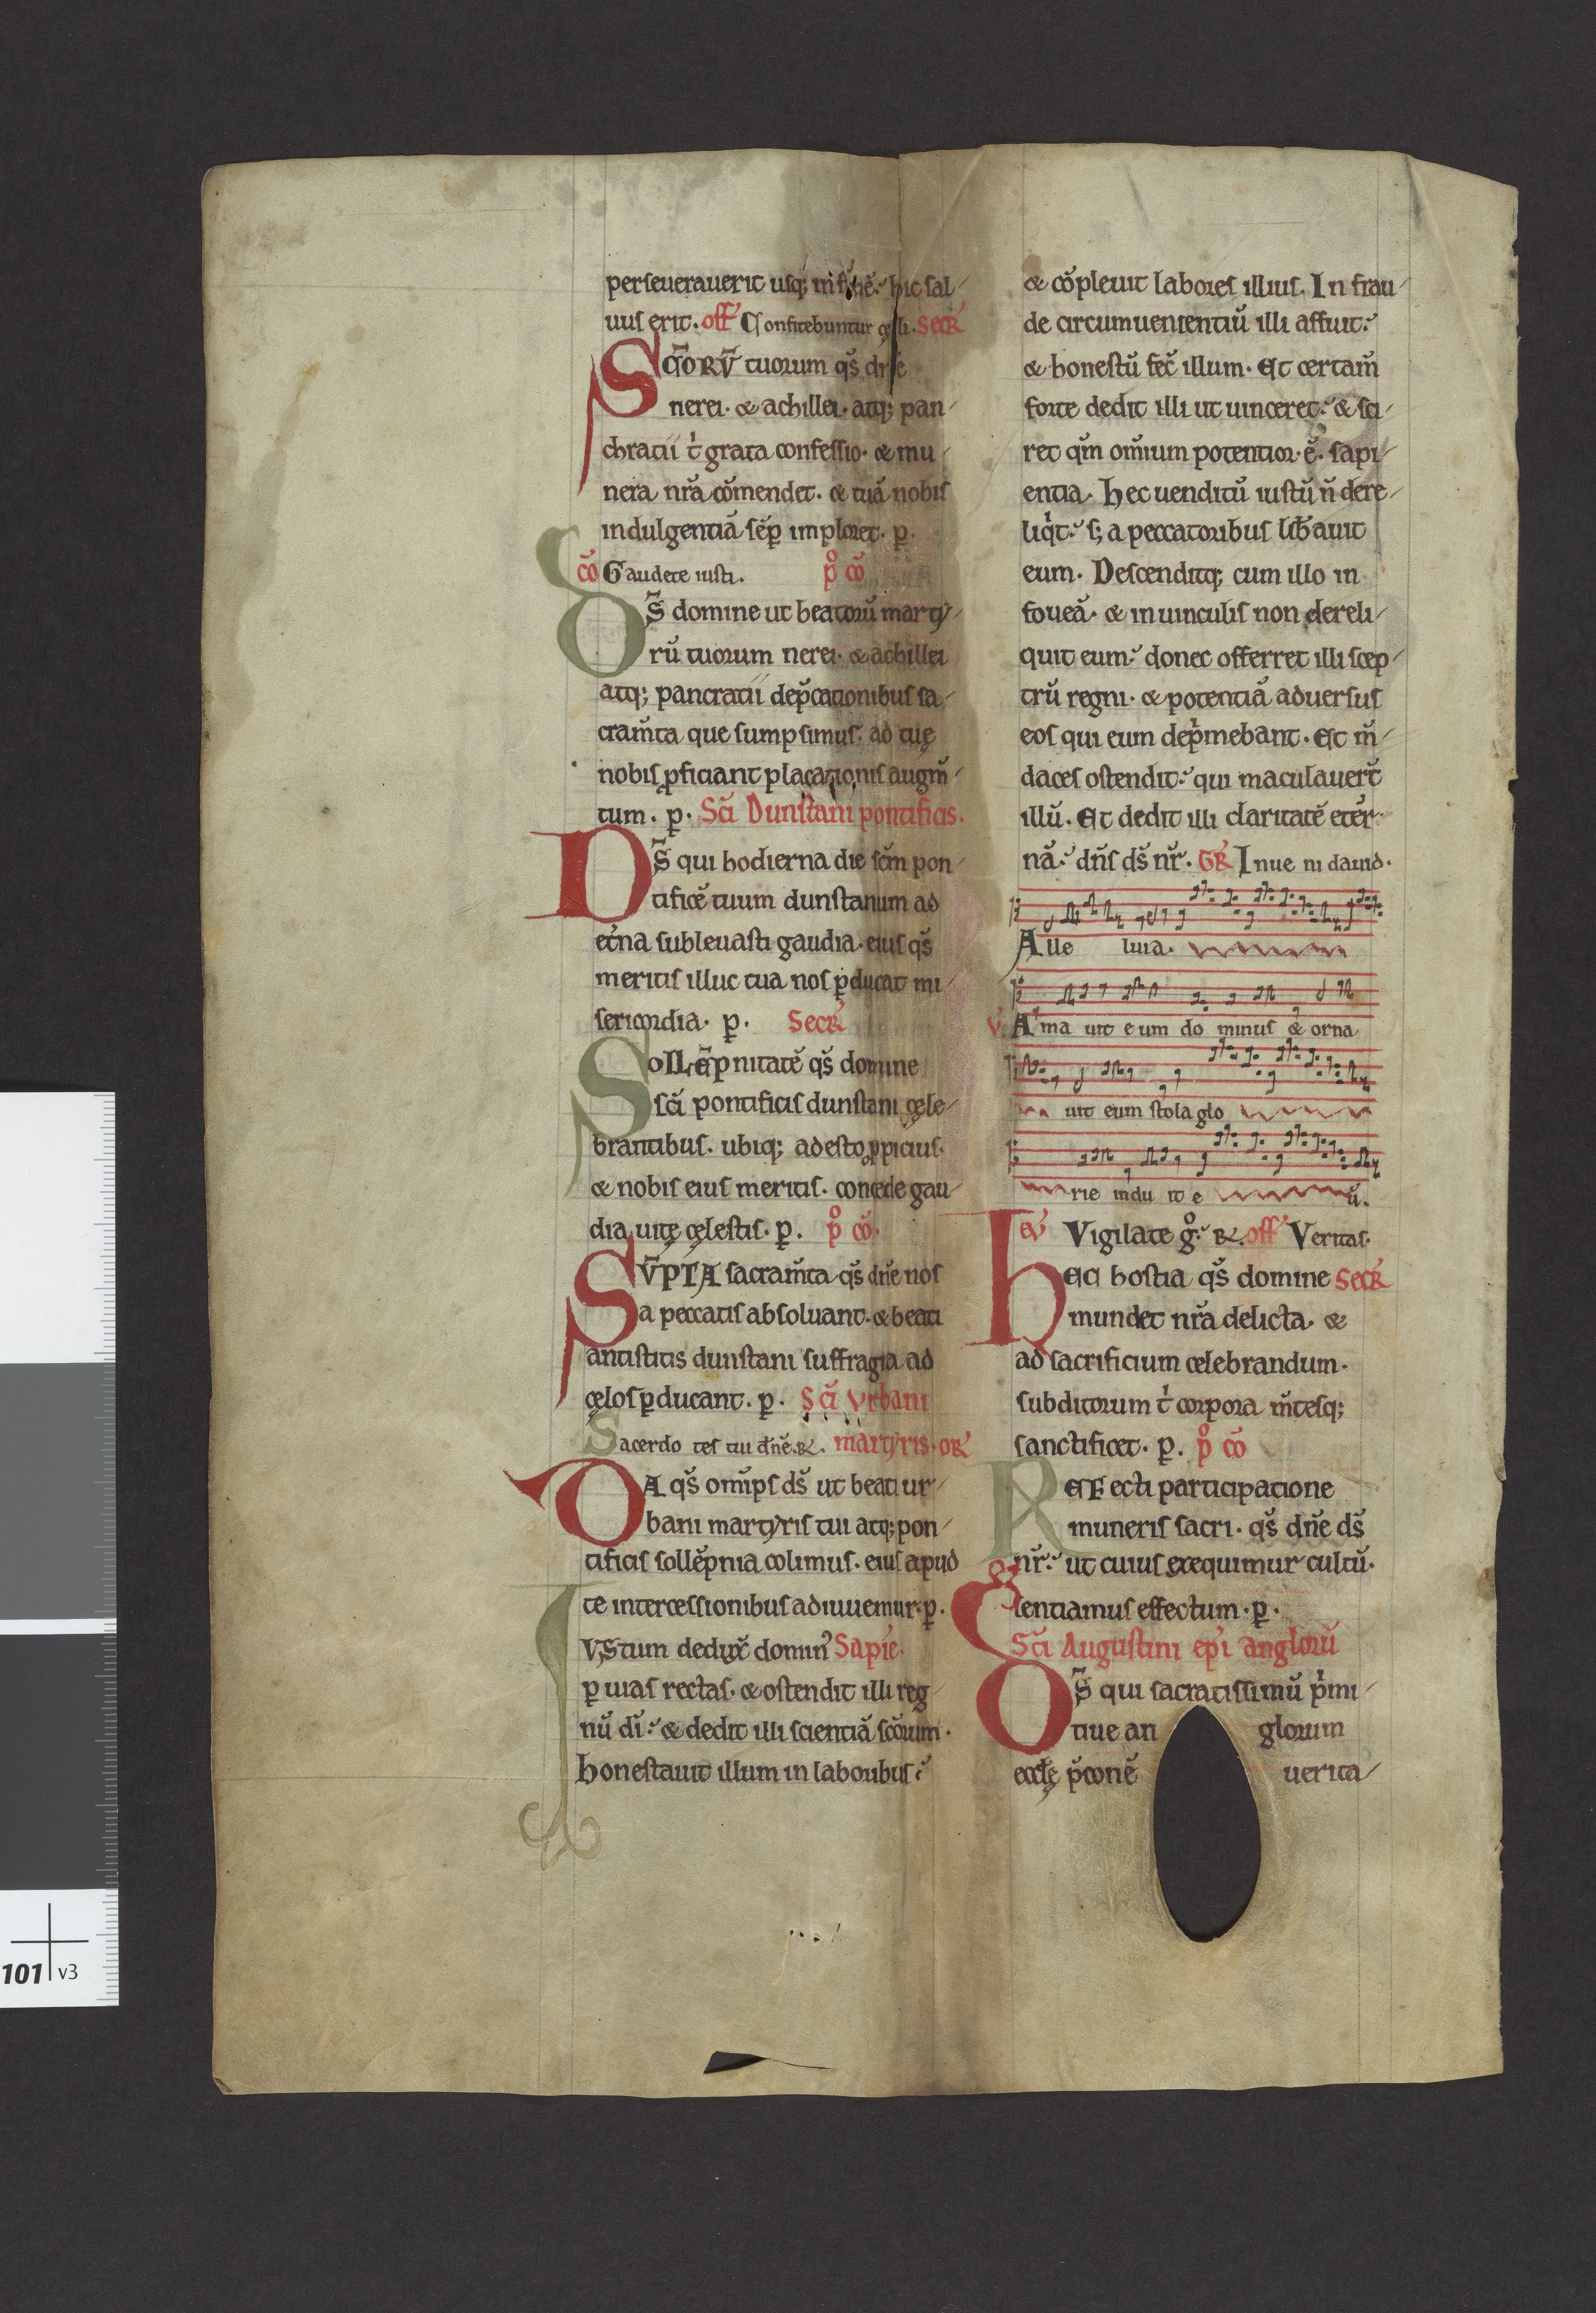 perseuerauerit usq; in finē. hic sal-
uus erit. off Confitebuntur celi. Secr̄
SC̄ORV̄ tuorum qs̄ dn̄e
nerei. & achillei. atq; pan-
chratii t' grata confessio. & mu-
nera nr̄a cōmendet. & tuā nobis
indulgentiā sēp imploret. p.
cō Gaudete iusti. p̊ cō
Qs̄ domine ut beatorū marty-
rū tuorum nerei. & achillei
atq; pancratii dep̄cationibus sa-
cram̄ta que sumpsimus. ad tuę
nobis ꝓficiant placationis augm̄-
tum. p. Sc̄i Dunstani pontificis.
Ds̄ qui hodierna die sc̄m pon-
tificē tuum dunstanum ad
et'na subleuasti gaudia. eius qs̄
meritis illuc tua nos ꝑducat mi-
sericordia. p. Secr̄
SOLLĒpnitatē qs̄ domine
sc̄i pontificis dunstani cęle-
brantibus. ubiq; adesto ꝓpicius.
& nobis eius meritis. concede gau-
dia uitę cęlestis. p. p̊ cō.
SV̄PTA sacram̄ta qs̄ dn̄e nos
a peccatis absoluant. & beati
antistitis dunstani suffragia ad
cęlos ꝑducant. p. Sc̄i Vrbani
Sacerdotes tui dn̄e. R. martyris. or̄
DA qs̄ om̄ips ds̄ ut beati ur-
bani martyris tui atq; pon-
tificis sollēpnia colimus. eius apud
te intercessionibus adiuuemur. p.
IVStum deduxit domin' Sapīe.
ꝑ uias rectas. & ostendit illi reg-
nū dī. & dedit illi scientiā sc̄orum.
honestauit illum in laboribus.
& cōpleuit labores illius. In frau-
de circumuenientiū illi affuit.
& honestū fec̄ illum. Et certam̄
forte dedit illi ut uinceret. & sci-
ret qm̄ om̄ium potentior. ē. sapi-
entia. Hec uenditū iustū n̄ dere-
liq't. s; a peccatoribus lib̄auit
eum. Descenditq; cum illo in
foueā. & in uinculis non dereli-
quit eum. donec offerret illi scep-
trū regni. & potentiā aduersus
eos qui eum dep'mebant. Et m̄-
daces ostendit. qui maculauer̄t
illū. Et dedit illi claritatē eter-
nā. dn̄s ds̄ nr̄. GR̄ Inueni dauid.
Alle luia.
V. Ama uit eum do minus & orna
uit eum stola glo
rie indu it e ū.
eꝟ Vigilate g̊. R. off Veritas.
HEC hostia qs̄ domine Secr̄
mundet nr̄a delicta. &
ad sacrificium celebrandum.
subditorum t' corpora m̄tesq;
sanctificet. p. p̊ cō
REFecti participatione
muneris sacri. qs̄ dn̄e ds̄
nr̄. ut cuius exequimur cultū.
sentiamus effectum. p.
Sc̄i Augustini epī anglorū
Ds̄ qui sacratissimū p'mi-
tiue an glorum
eccłę p̄conē uerita-